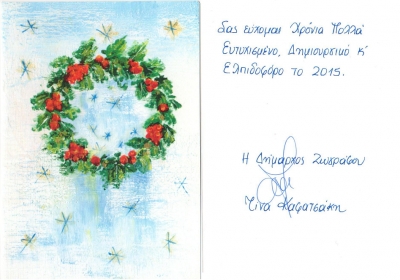 Σας εύχομαι Χρόνια Πολλά
Ευτυχισμένο, Δημιουργικό κ'
Ελπιδοφόρο το 2015.
Η Δήμαρχος Ζωγράφου
Τίνα Καφατσάκη